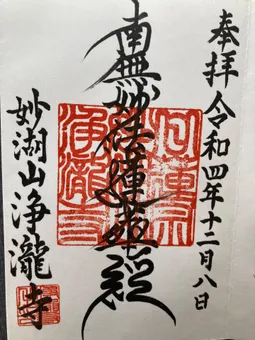 奉拝 令和四年十二月八日
南無妙法蓮華経
妙湖山浄瀧寺
日蓮宗
浄瀧寺